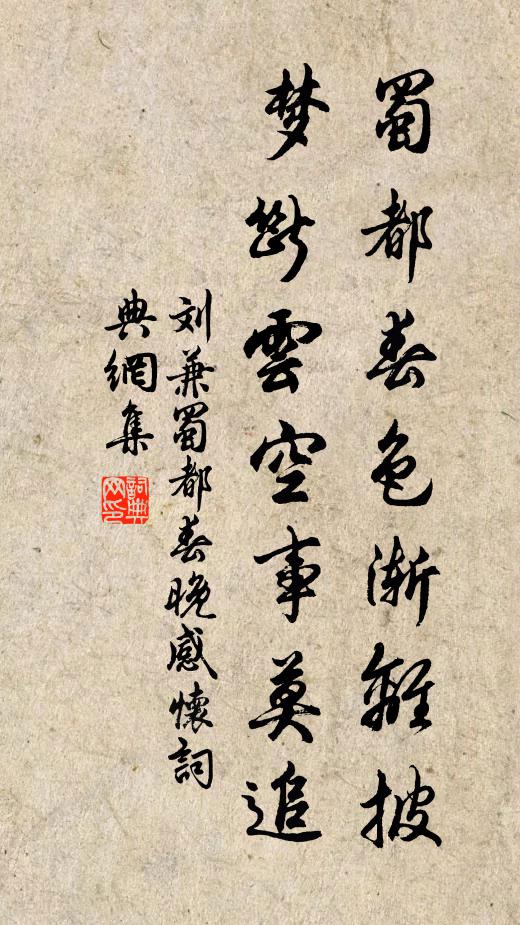 蜀都春色漸離披
梦斷雲空事莫追
刘兼蜀都春晚感懷詞
典網集
詞典網印